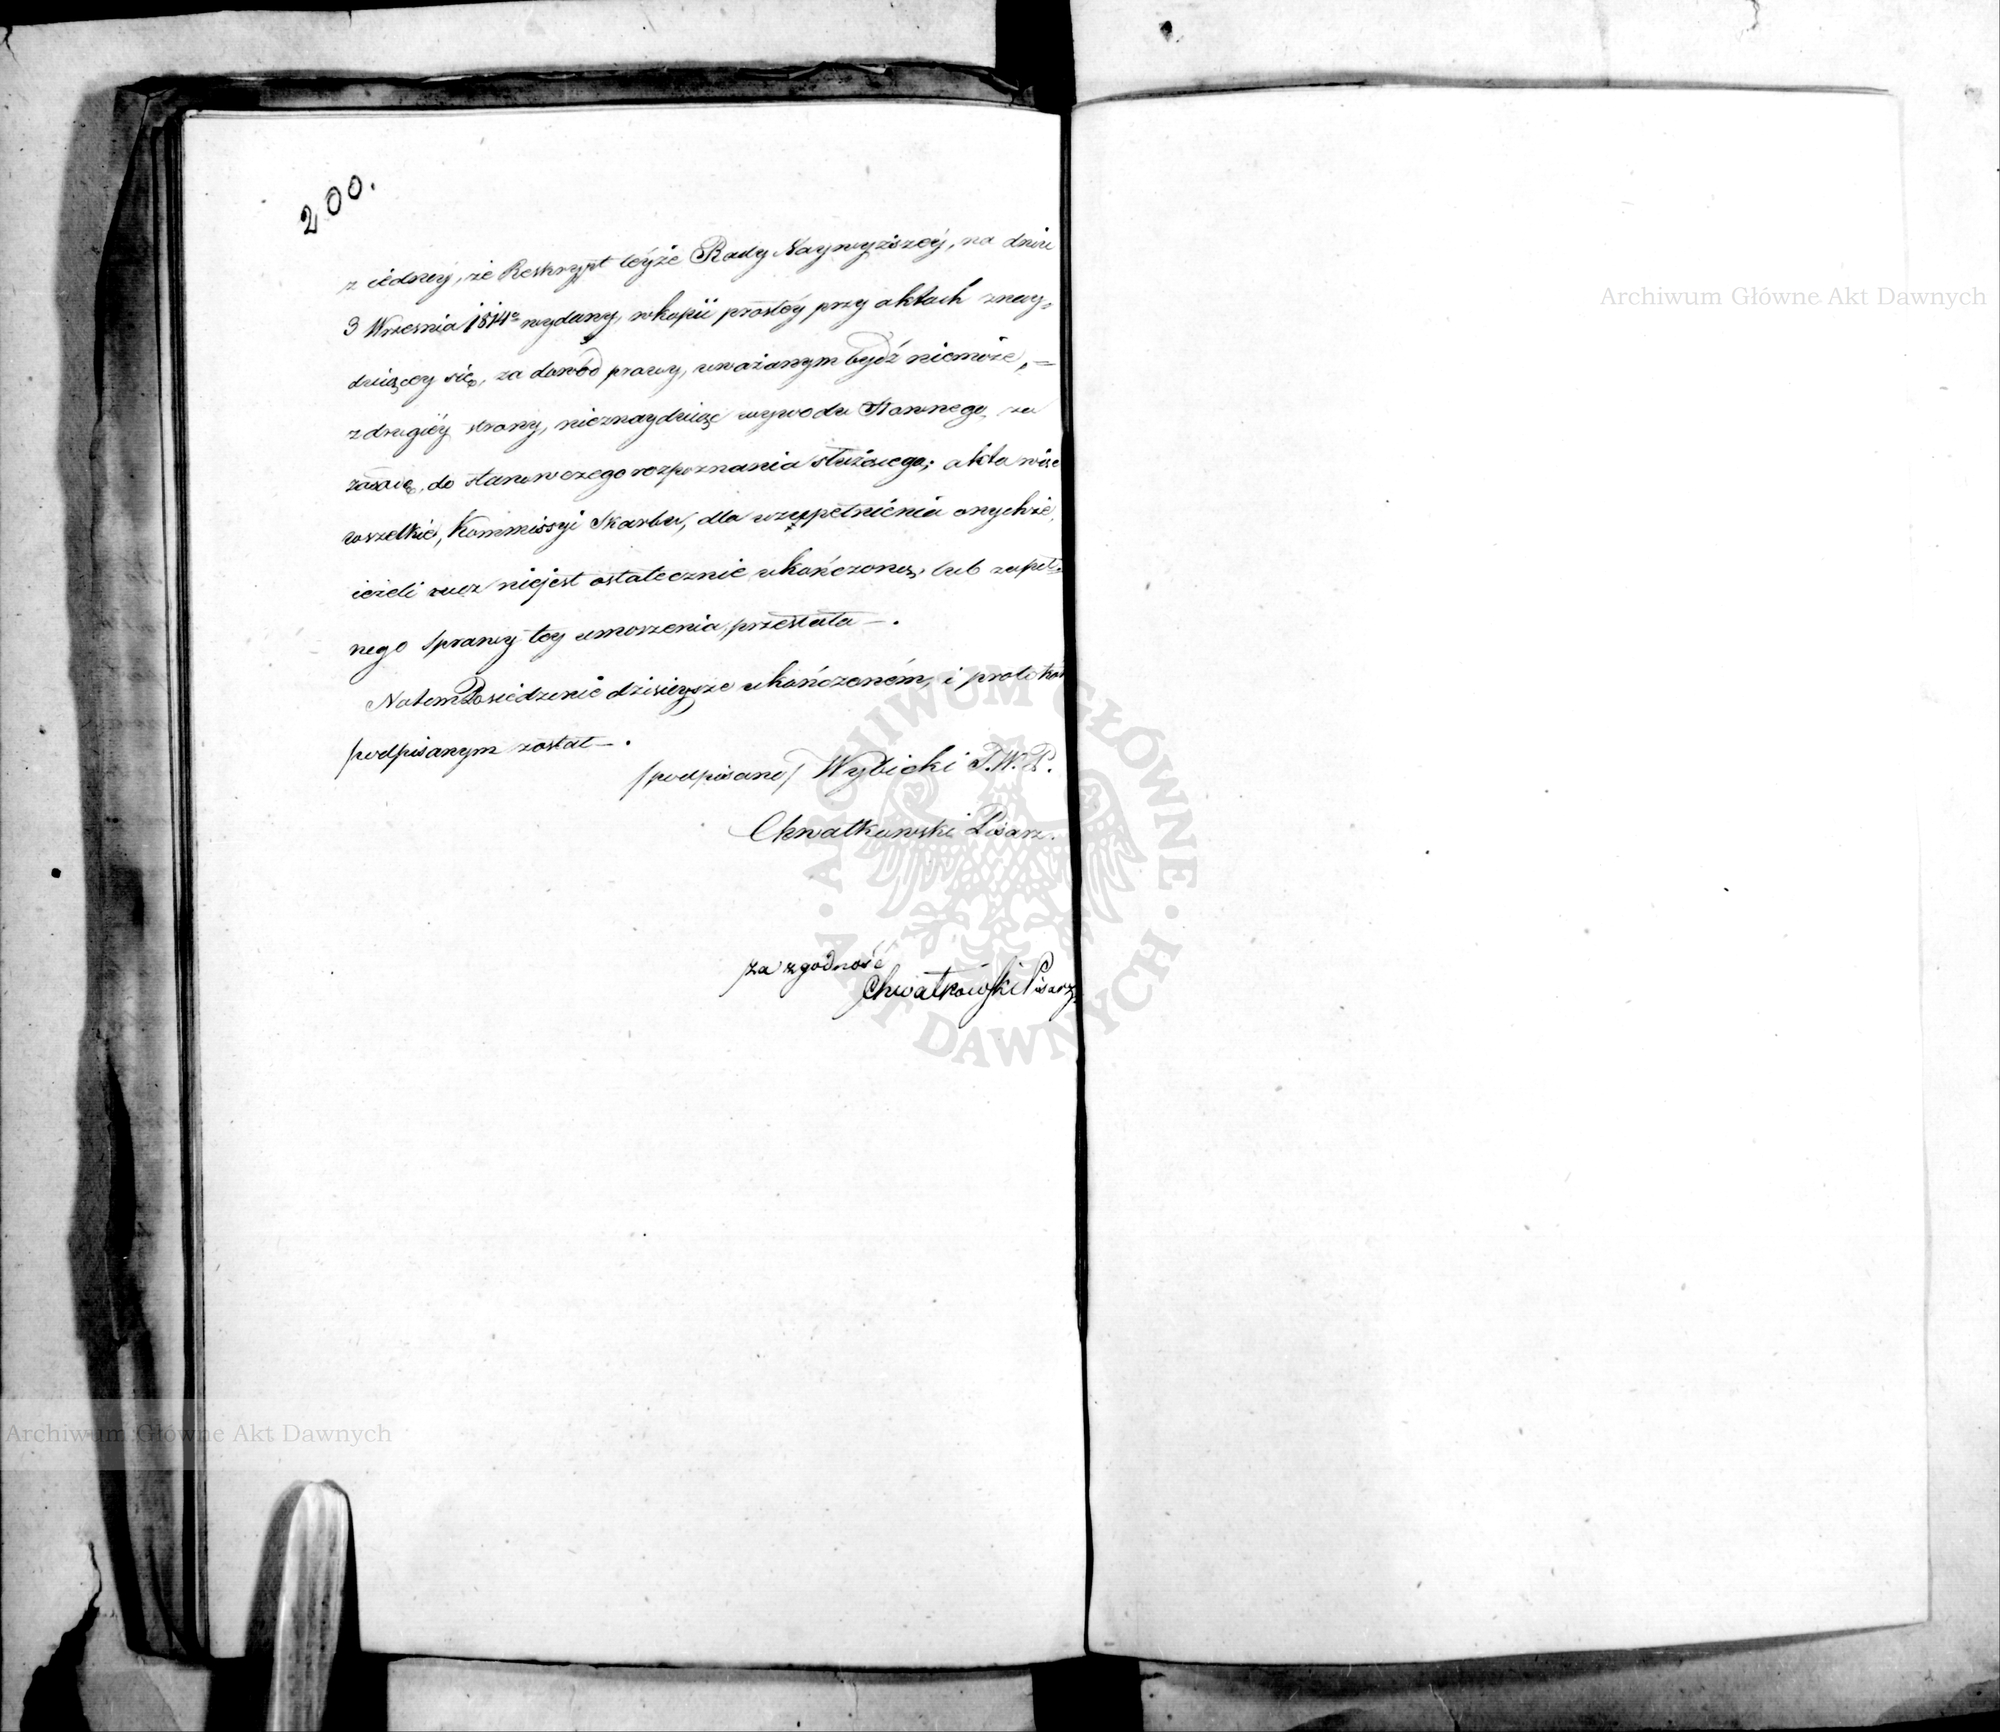 200.
z iedney, że Reskrypt teyże Rady Naywyższey, na dniu
3 Września 1814º wydany, w kopii prostey przy aktach znay-
duiącey się, za dowód prawy, uważanym bydź niemoże, =
z drugiéy strony, nieznayduiąc wywodu Stannego za
zasadę, do stanowczego rozpoznania służącego; akta więc
wszelkie, Kommissyi Skarbu, dla uzupełniénia onychże,
ieżeli rzecz niejest ostatecznie ukończoną, lub zupeł-
nego Sprawy tey umorzenia, przesłała —.
Natem Posiedzenie dzisieysze ukończoném, i protokół
podpisanym został —.
/podpisano/ Wybicki P.W.P.
Chwałkowski Pisarz.
za zgodność
Chwałkowski Pisarz
Archiwum Główne Akt Dawnych
Archiwum Główne Akt Dawnych
ARCHIWUM GŁÓWNE · AKT DAWNYCH ·